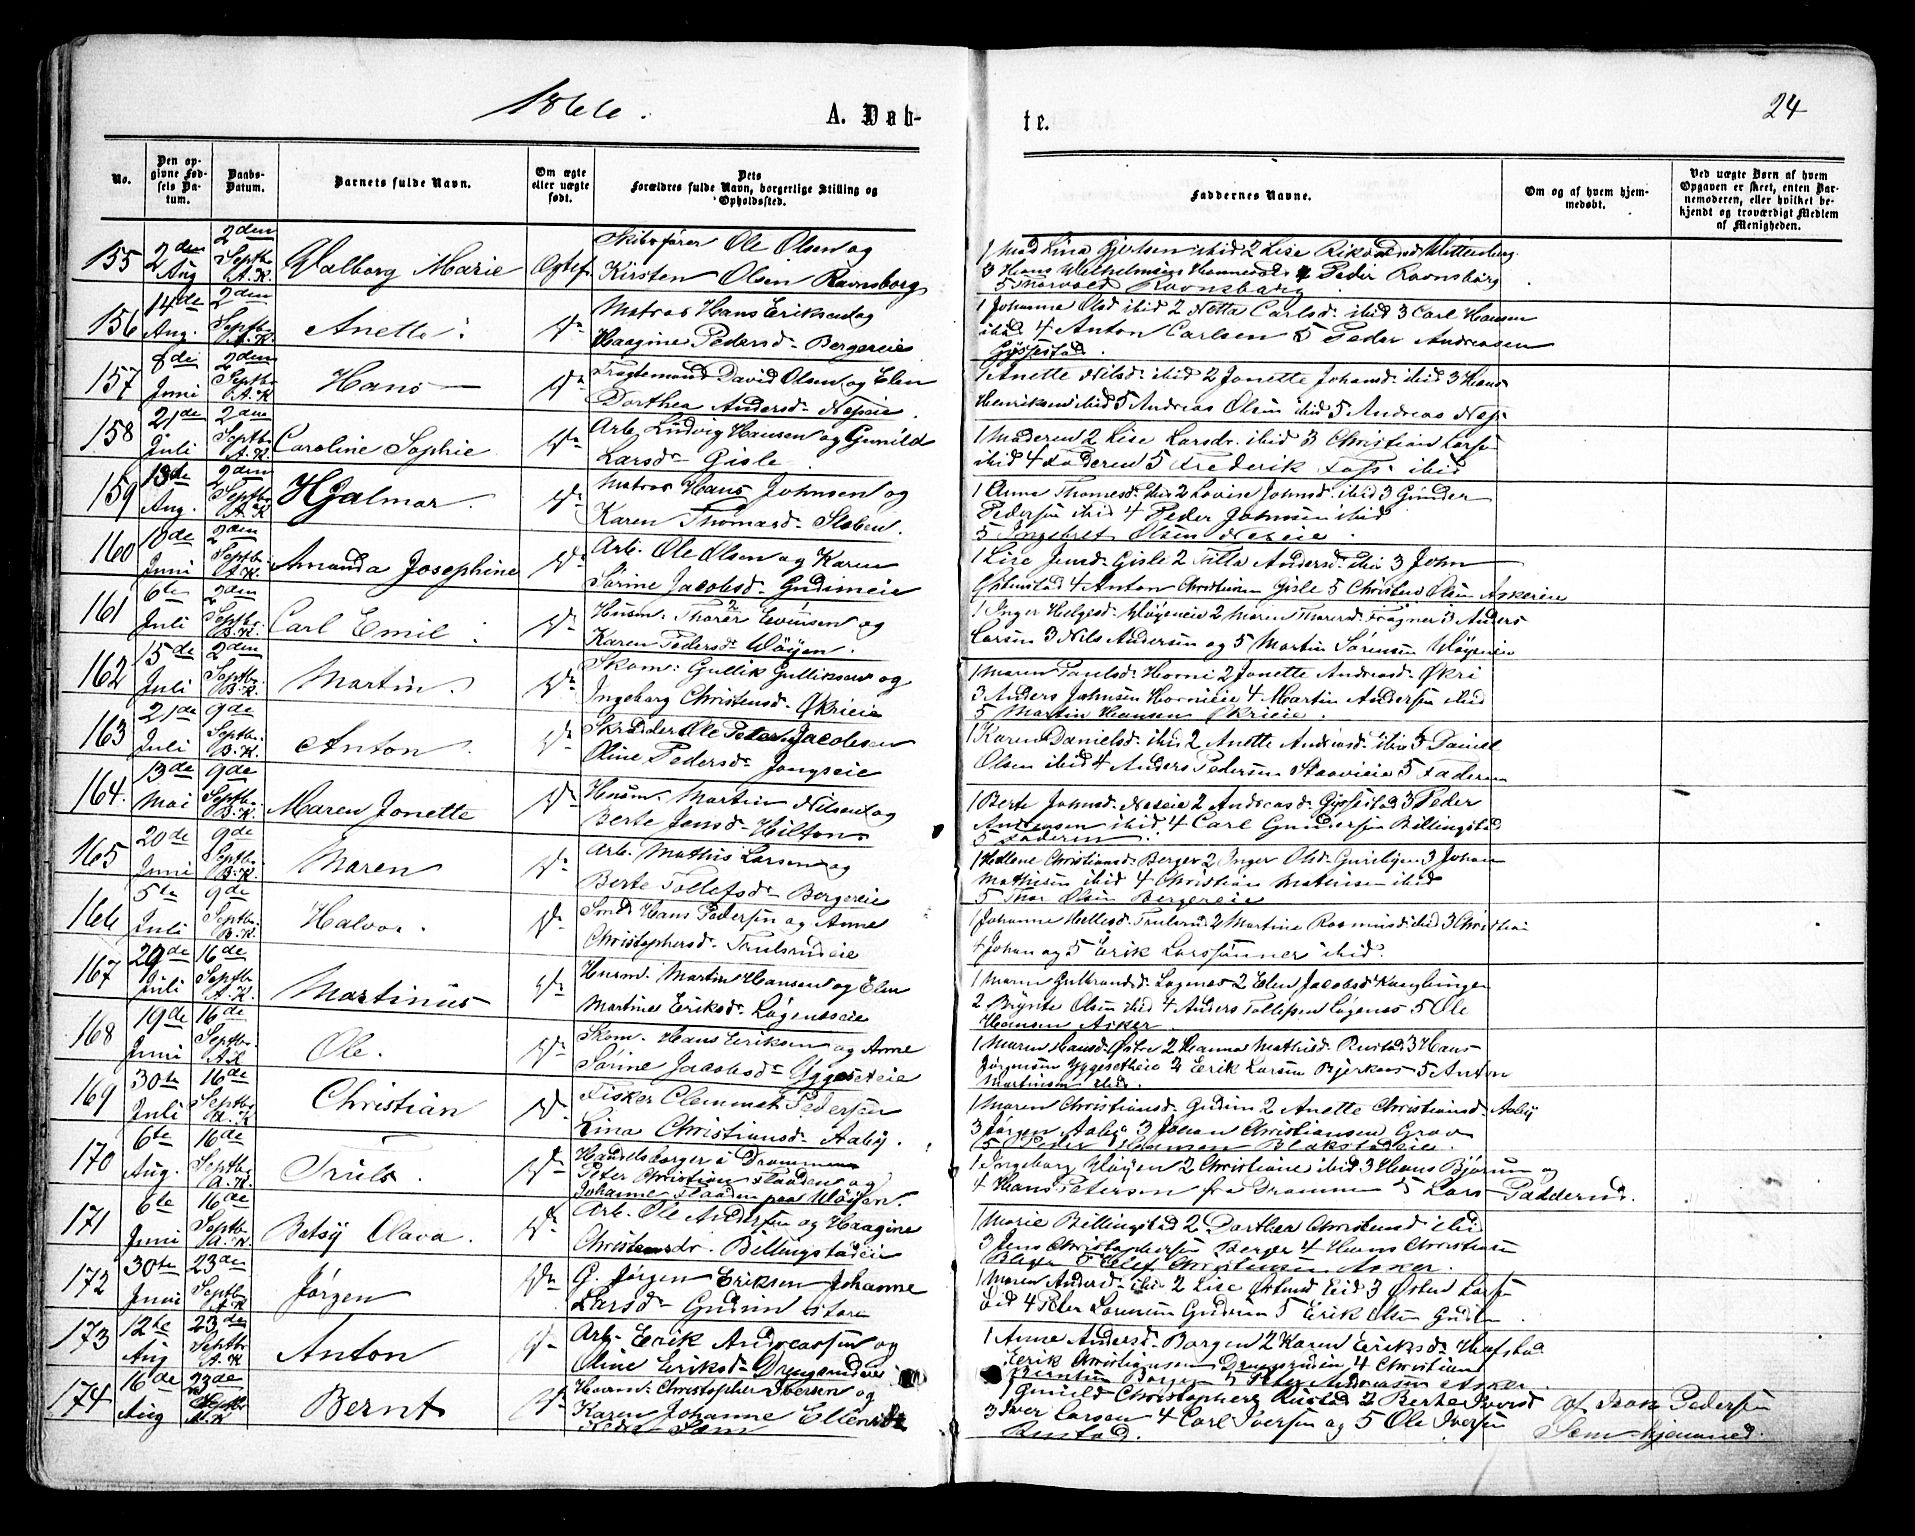 1866.
A. Døb-
te.
24
No.
Den op-
givne Fød-
sels Da-
tum.
Daabs-
Datum.
Barnets fulde Navn.
Om ægte
eller uægte
født.
Dets
Forældres fulde Navn, borgerlige Stilling og
Opholdssted.
Faddernes Navne.
Om og af hvem hjem-
medøbt.
Ved uægte Børn af hvem
Opgaven er skeet, enten Bar-
nemoderen, eller hvilket be-
kjendt og troværdigt Medlem
af Menigheden.
155
2den Aug
2den Septbr. A.K.
Valborg Marie
Ægtef.
Skibsfører Ole Olsen og
Kirsten Olsen Ravnsborg
3 Hans Wilhelmsen 4 Peder Ravnsborg
5 Ravnsborg
156
14de Aug.
2den Septbr. A.K.
Anette
Do
Matros Hans Eriksen og
Haagine Pedersd. Bergereie
1 Johanne Olsd ibid 2 Netta Carlsd. ibid 3 Carl Hansen
ibid 4 Anton Carlsen 5 Peder Andreasen
Gjøssestad.
157
8de Juni
2den Septbr. A.K.
Hans
Do
Fragtemand David Olsen og Elen
Dorthea Andersd. Neseie.
1 Anette Nilsd. ibid 2 Jonette Johansd. ibid 3 Hans
Henriksen ibid 5 Andreas Olsen ibid 5 Andreas Nes
158
21de Juli
2den Septbr. A.K.
Caroline Sophie
Do
Arb. Ludvig Hansen og Gunild
Larsd. Gisle
1 Moderen 2 Lise Larsdr. ibid 3 Christian Larsen
ibid 4 Faderen 5 Frederik Foss ibid
159
13de Aug.
2den Septbr. A.K.
Hjalmar.
Do
Matros Hans Johnsen og
Karen Thomasd. Slaben.
1 Anna Thomesd. ibid 2 Lovise Johnsd. ibid 3 Gunder
Pedersen ibid 4 Peder Johnsen ibid
5 Ingebret Olsen Neseie.
160
10de Juni
2den Septbr. A.K.
Amanda Josephine
Do
Arb. Ole Olsen og Karen
Sørine Jacobsd. Gudimeie
1 Lise Jensd. Gisle 2 Andersd. ibid 3 John
4 Anton Christensen Gisle 5 Christen Olsen Askereie
161
6te Juli
2den Septbr. B.K.
Carl Emil
Do
Husm. Thorer Evensen og
Karen Pedersd. Wøyen.
1 Inger Helgesd. Wøyeneie 2 Maren Thorersd. Fragner 3 Anders
Larsen 3 Nils Andersen og 5 Martin Sørensen Wøyeneie
162
15de Juli
2den Septbr. B.K.
Martin.
Do
Skom. Gullik Gulliksen og
Ingeborg Christensd. Økrieie
1 Maren Paulsd. Horni 2 Jonette Andreasd. Økri
3 Anders Johnsen Hornieie 4 Martin Andersen ibid
5 Martin Hansen Økrieie.
163
21de Juli
9de Septbr. B.K.
Anton
Do
Skrædder Ole Peter Jacobsen
Oline Pedersd. Jongseie
1 Karen Danielsd. ibid 2 Anette Andreasd. ibid 3 Daniel
Olsen ibid 4 Anders Pedersen Staavieie 5 Faderen
164.
13de Mai
9de Septbr. B.K.
Maren Jonette
Do
Husm. Martin Nilsen og
Berte Jensd. Hilton
1 Berte Johnsd. Neseie 2 Andreasd. Gjøssestad 3 Peder
Andersen ibid 4 Carl Gundersen Billingstad
5 Faderen.
165
20de Juni
9de Septbr. B.K.
Maren
Do
Arb. Mathis Larsen og
Berte Tollefsd. Bergereie
1 Hellene Christiansd. Berger 2 Inger Olsd. 3 Johan
Mathisen ibid 4 Christian Mathisen ibid
5 Thor Olsen Bergereie
166
5te Juli
9de Septbr. B.K.
Halvor.
Do
Smed Hans Pedersen og Anne
Christophersd. Trulsrudeie
1 Johanne Hellesd. Trulsrud 2 Martine Rasmusd. ibid 3 Christian
4 Johan og 5 Erik Larssønner ibid.
167
29de Juli
16de Septbr. A.K.
Martinus
Do
Husm. Martin Hansen og Elen
Martinea Eriksd. Løgeneseie
1 Maren Gulbrandsd. Løgenes 2 Elen Jacobsd.
2 Brynte Olsen ibid 4 Anders Tollefsen Løgenes 5 Ole
Hansen Asker
168
19de Juni
16de Septbr. A.K.
Ole.
Do
Skom. Hans Eriksen og Anne
Sørine Jacobsd. Yggeseteie
1 Maren Hansd. Østre 2 Hanna Mathisd. Rustad 3 Hans
Jørgensen Yggeseteie 3 Erik Larsen Bjerkaas 5 Anton
Martinsen ibid.
169
30te Juli
16de Septbr. A.K.
Christian
Do
Fisker Clemmet Pedersen
Lina Christiansd. Aaby.
1 Maren Christiansd. Gudim 2 Anette Christiansd. Aaby
3 Jørgen Aaby 3 Johan Christiansen Grav
5 Peder Hansen Blakstadeie.
170
6te Aug.
16de Septbr. A.K.
Truls.
Do
Handelsborger i Drammen
Peter Christian Flaaden og
Johanne Flaaden paa Wøyen.
1 Ingeborg Wøyen 2 Christiane ibid 3 Hans Bjørum og
4 Hans Petersen fra Drammen 5 Lars Padderud.
171
6te Juni
16de Septbr. A.K.
Betsy Olava.
Do
Arb. Ole Andersen og Haagine
Christensdr. Billingstadeie
1 Marie Billingstad 2 Dorthea Christensd. ibid
3 Jens Christophersen Berger 4 Hans Christiansen
5 Olef Christensen Asker.
172
30te Juni
23de Septbr. A.K.
Jørgen
Do
G. Jørgen Eriksen Johanne
Larsd. Gudim store
1 Maren Andersd. ibid 2 Lise Østensd. Eid 3 Østen Larsen
Eid 4 Peder Sørensen Gudim 5 Erik Olsen Gudim
173
12te Aug
23de Septbr. A.K.
Anton
Do
Arb. Erik Andreassen og
Oline Eriksd. Drengsrudeie
1 Anne Andersd. Borgen 2 Karen Eriksd. Hofstad
Erik Christiansen Drengsrudeie 4 Christian
Berntsen Borgen 5 Peter Andreasen Asker
174
16de Aug
23de Septbr. A.K.
Bernt
Do
Husm. Christopher Iversen og
Karen Johanne Ellensd.
Sem
1 Gunild Christophersd. Rustad 2 Berte Iversd.
3 Iver Larsen 4 Carl Iversen og 5 Ole Iversen
Rustad.
af Isak Pedersen
Sem hjemmed.